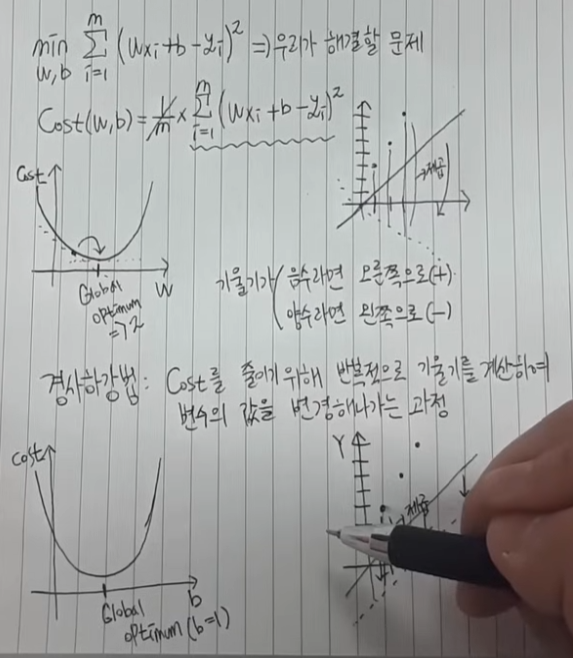 min Σ (wxᵢ+b-yᵢ)² ⇒ 우리가 해결할 문제
w,b i=1 m
Cost(w,b) = 1/m × Σ (wxᵢ+b-yᵢ)²
i=1 m
Cost
→제곱
W
Global
optimum
⇒2
기울기가 음수라면 오른쪽으로(+)
양수라면 왼쪽으로(-)
경사하강법: Cost를 줄이기 위해 반복적으로 기울기를 계산하여
변수의 값을 변경해나가는 과정
cost
b
Global
optimum (b=1)
Y
제곱